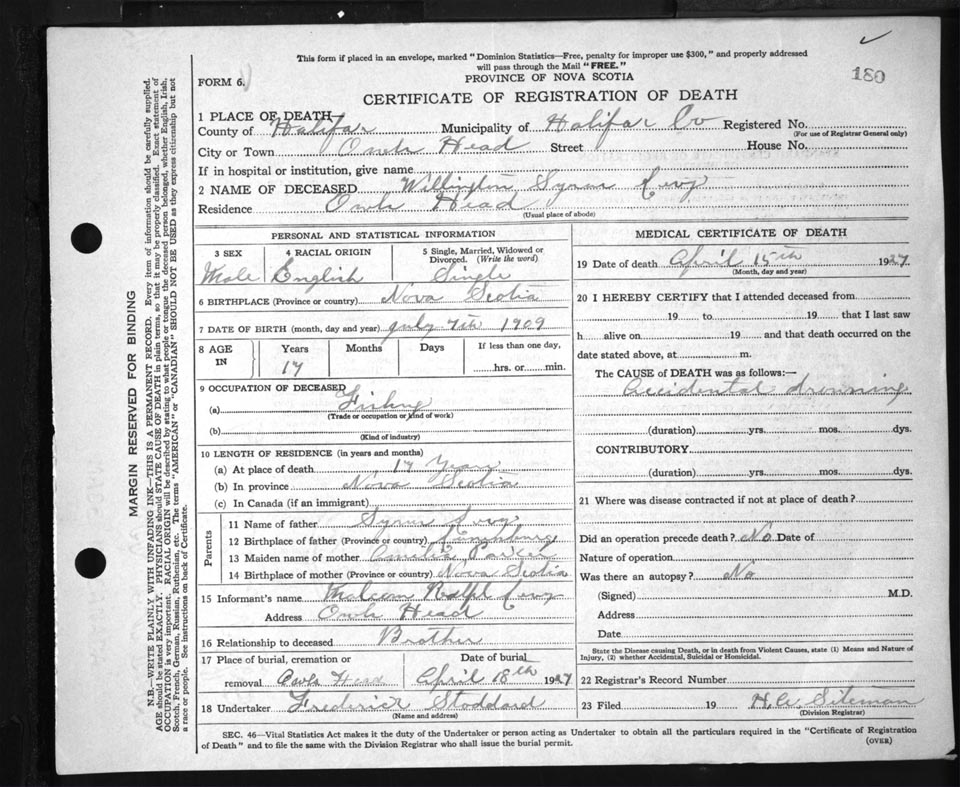 This form if placed in an envelope, marked "Dominion Statistics—Free, penalty for improper use $300," and properly addressed
will pass through the Mail "FREE."
180
FORM 6.
PROVINCE OF NOVA SCOTIA
CERTIFICATE OF REGISTRATION OF DEATH
1 PLACE OF DEATH—
County of Halifax Municipality of Halifax Co Registered No.
(For use of Registrar General only)
City or Town Owls Head Street House No.
If in hospital or institution, give name
2 NAME OF DECEASED Willington Syrus Levy
Residence Owls Head
(Usual place of abode)
PERSONAL AND STATISTICAL INFORMATION
3 SEX 4 RACIAL ORIGIN 5 Single, Married, Widowed or
Divorced. (Write the word)
Male English Single
6 BIRTHPLACE (Province or country) Nova Scotia
7 DATE OF BIRTH (month, day and year) July 7th 1909
8 AGE IN Years Months Days If less than one day,
17 hrs. or min.
9 OCCUPATION OF DECEASED
(a) Fishing
(Trade or occupation or kind of work)
(b)
(Kind of industry)
10 LENGTH OF RESIDENCE (in years and months)
(a) At place of death 17 Years
(b) In province Nova Scotia
(c) In Canada (if an immigrant)
Parents
11 Name of father Syrus Levy
12 Birthplace of father (Province or country) Lunenburg
13 Maiden name of mother Amelia Parker
14 Birthplace of mother (Province or country) Nova Scotia
15 Informant's name Ralph Levy
Address Owls Head
16 Relationship to deceased Brother
17 Place of burial, cremation or Date of burial
removal Owls Head April 18th 1927
18 Undertaker Frederick Stoddard
(Name and address)
MEDICAL CERTIFICATE OF DEATH
19 Date of death April 15th 1927
(Month, day and year)
20 I HEREBY CERTIFY that I attended deceased from
19 to 19 that I last saw
h alive on 19 and that death occurred on the
date stated above, at m.
The CAUSE of DEATH was as follows:—
Accidental drowning
(duration) yrs. mos. dys.
CONTRIBUTORY
(duration) yrs. mos. dys.
21 Where was disease contracted if not at place of death?
Did an operation precede death? No Date of
Nature of operation
Was there an autopsy? No
(Signed) M.D.
Address
Date
State the Disease causing Death, or in death from Violent Causes, state (1) Means and Nature of
Injury, (2) whether Accidental, Suicidal or Homicidal.
22 Registrar's Record Number
23 Filed 19 H.A. Siteman
(Division Registrar)
SEC. 46—Vital Statistics Act makes it the duty of the Undertaker or person acting as Undertaker to obtain all the particulars required in the "Certificate of Registration
of Death" and to file the same with the Division Registrar who shall issue the burial permit.
(OVER)
MARGIN RESERVED FOR BINDING
N.B.—WRITE PLAINLY WITH UNFADING INK—THIS IS A PERMANENT RECORD. Every item of information should be carefully supplied.
AGE should be stated EXACTLY. PHYSICIANS should STATE CAUSE OF DEATH in plain terms, so that it may be properly classified. Exact statement of
OCCUPATION is very important. RACIAL ORIGIN will be described by stating to what people or tongue the deceased person belonged, whether English, Irish,
Scotch, French, German, Russian, Ruthenian, etc. The terms "AMERICAN" or "CANADIAN" SHOULD NOT BE USED as they express citizenship but not
a race or people. See instructions on back of Certificate.